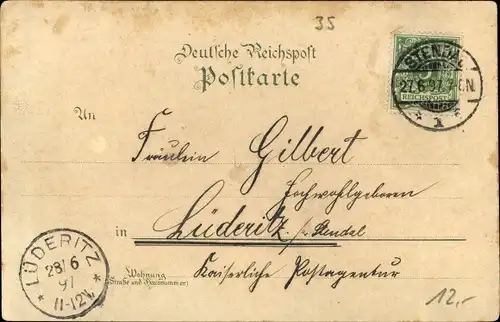 35
Deutsche Reichspost
Postkarte
STENDAL
27.6.97. 7-8N.
REICHSPOST
* 1 *
An
Fräulein Gilbert
Hochwohlgeboren
in Lüderitz b/Stendal
Kaiserliche Postagentur
Wohnung
(Straße und Hausnummer)
LÜDERITZ
28/6
97
11-12V.
12,-